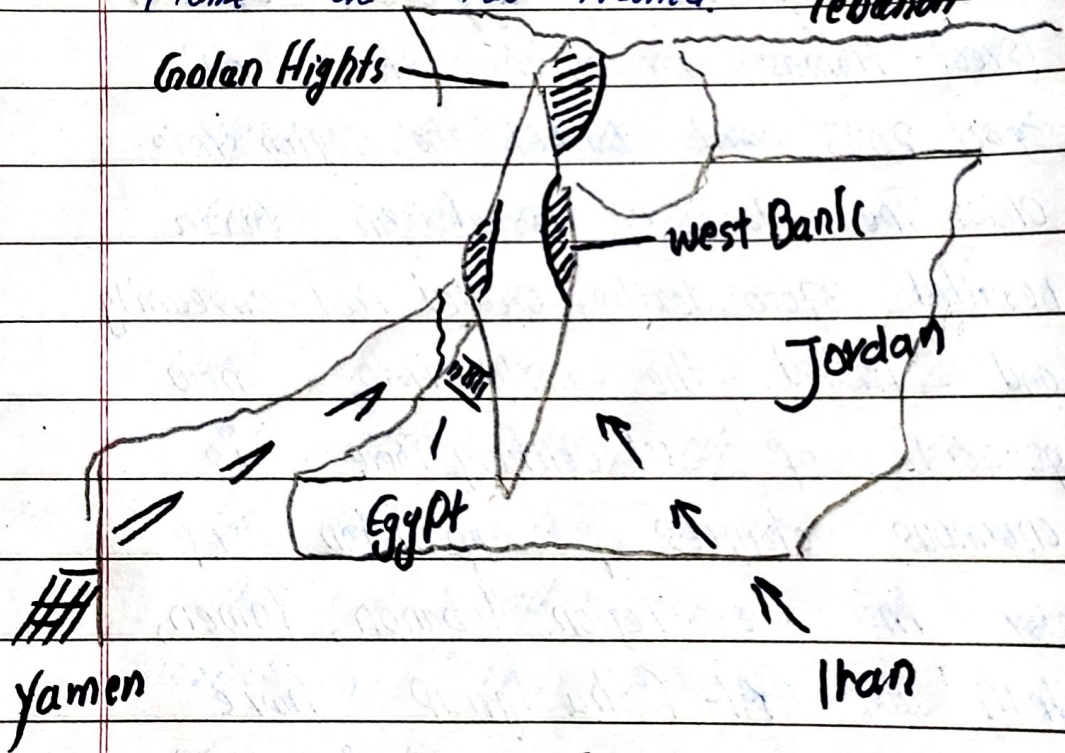 lebanon
Golan Hights
west Bank
Jordan
Egypt
Iran
Yamen